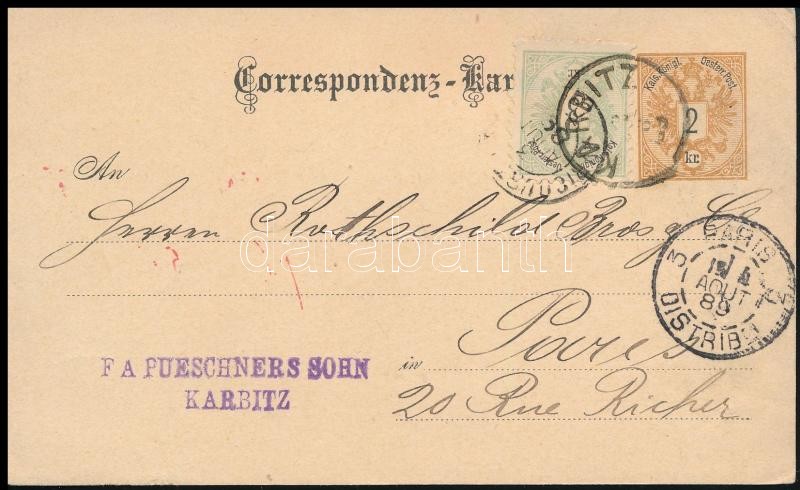 Correspondenz-Kar
Kais. Königl. Oesterr. Post
2
kr.
KARBITZ
An
Herren Rothschild Bros & Co
PARIS
3
AOUT
89
DISTRIB
in Paris
20 Rue Richer
F A PUESCHNERS SOHN
KARBITZ
darabanth